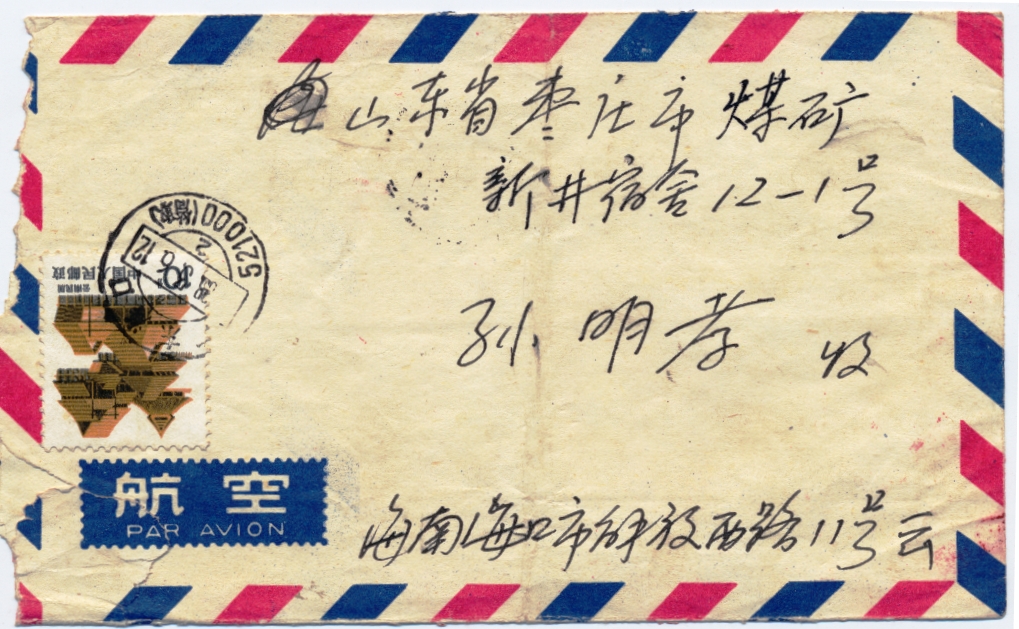 山东省枣庄市煤矿
新井宿舍12-1号
孙明孝 收
521000
中国人民邮政
云南民居
10
航空
PAR AVION
海南海口市解放西路11号云